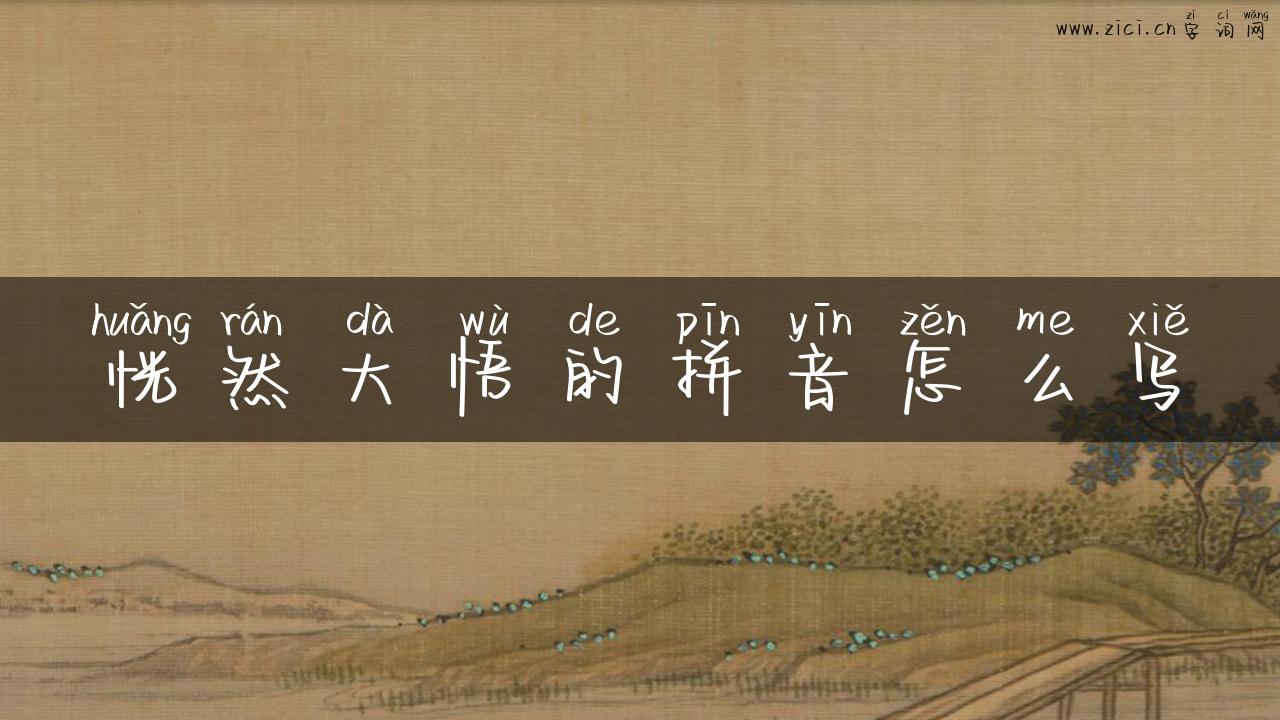 zì cí wǎng
www.zici.cn字词网
huǎng rán dà wù de pīn yīn zěn me xiě
恍然大悟的拼音怎么写